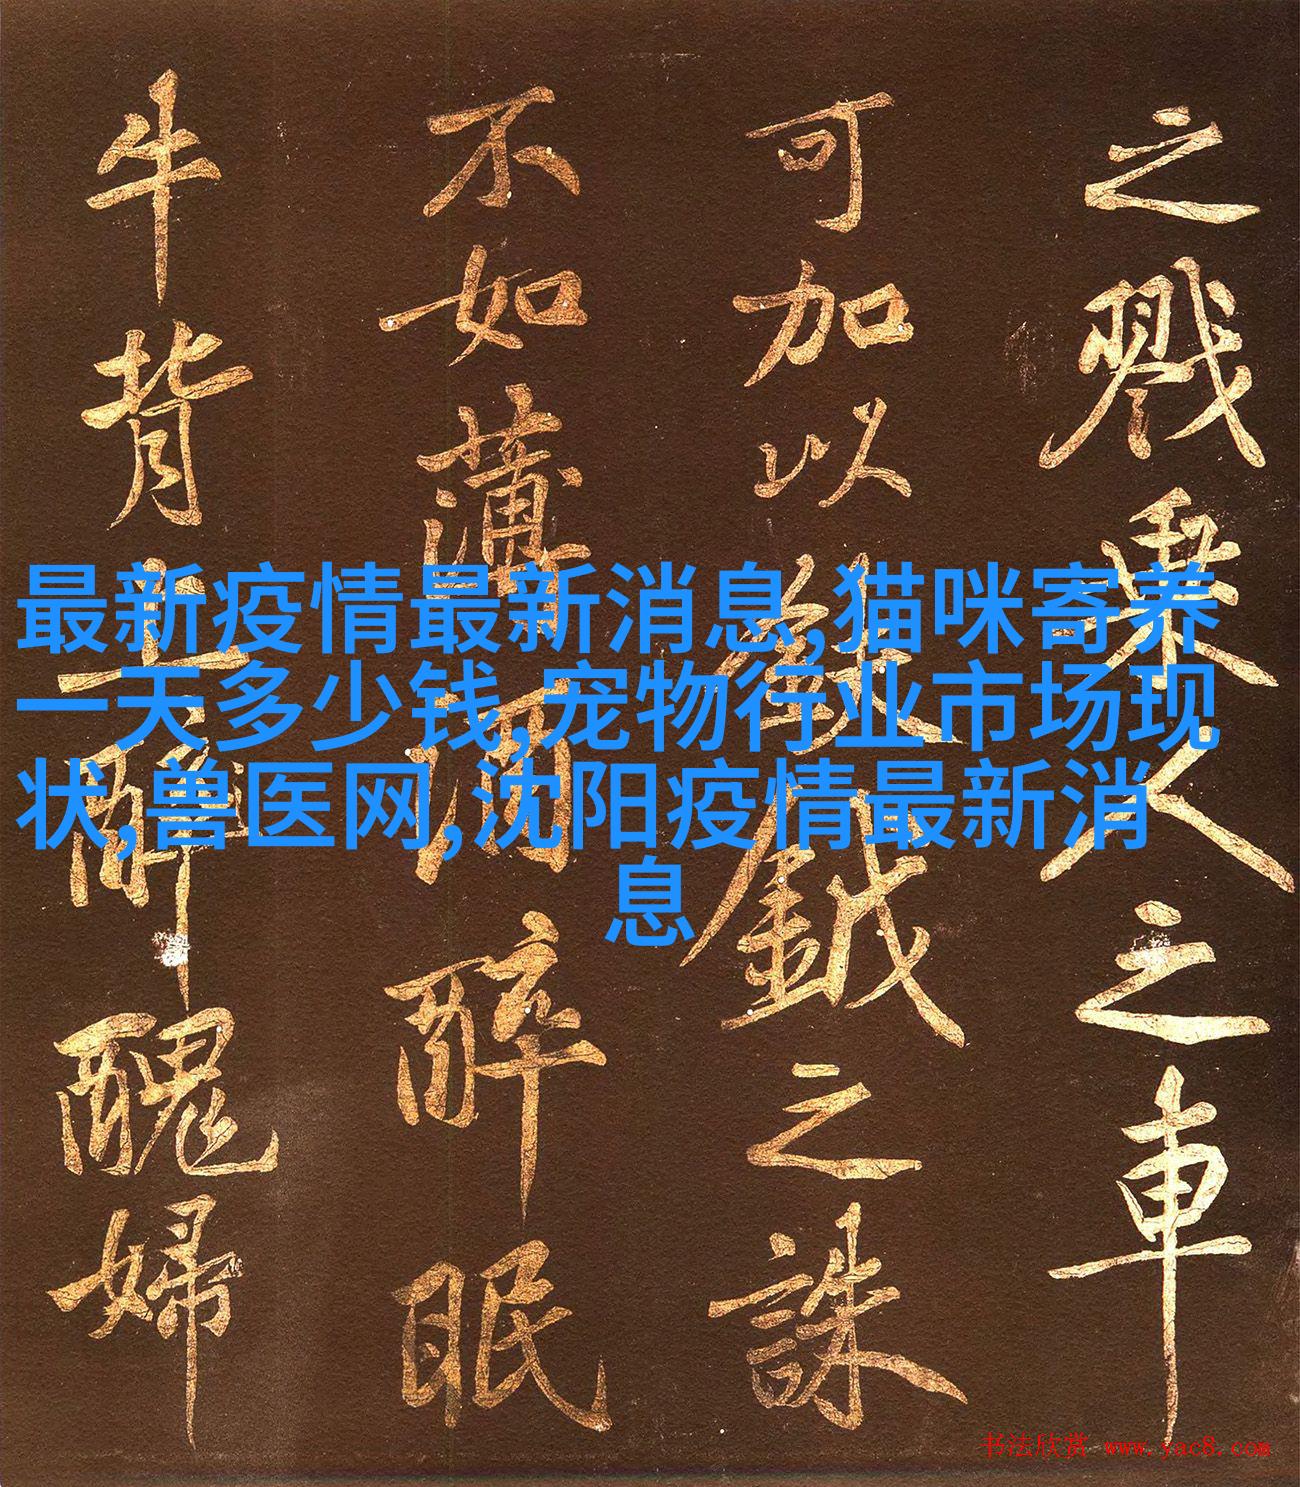 之戮乘人之車
可加以鈇鉞之誅
不如薄酒醉眠
牛背上醜婦
最新疫情最新消息,猫咪寄养
一天多少钱,宠物行业市场现
状,兽医网,沈阳疫情最新消
息
书法欣赏 www.yac8.com